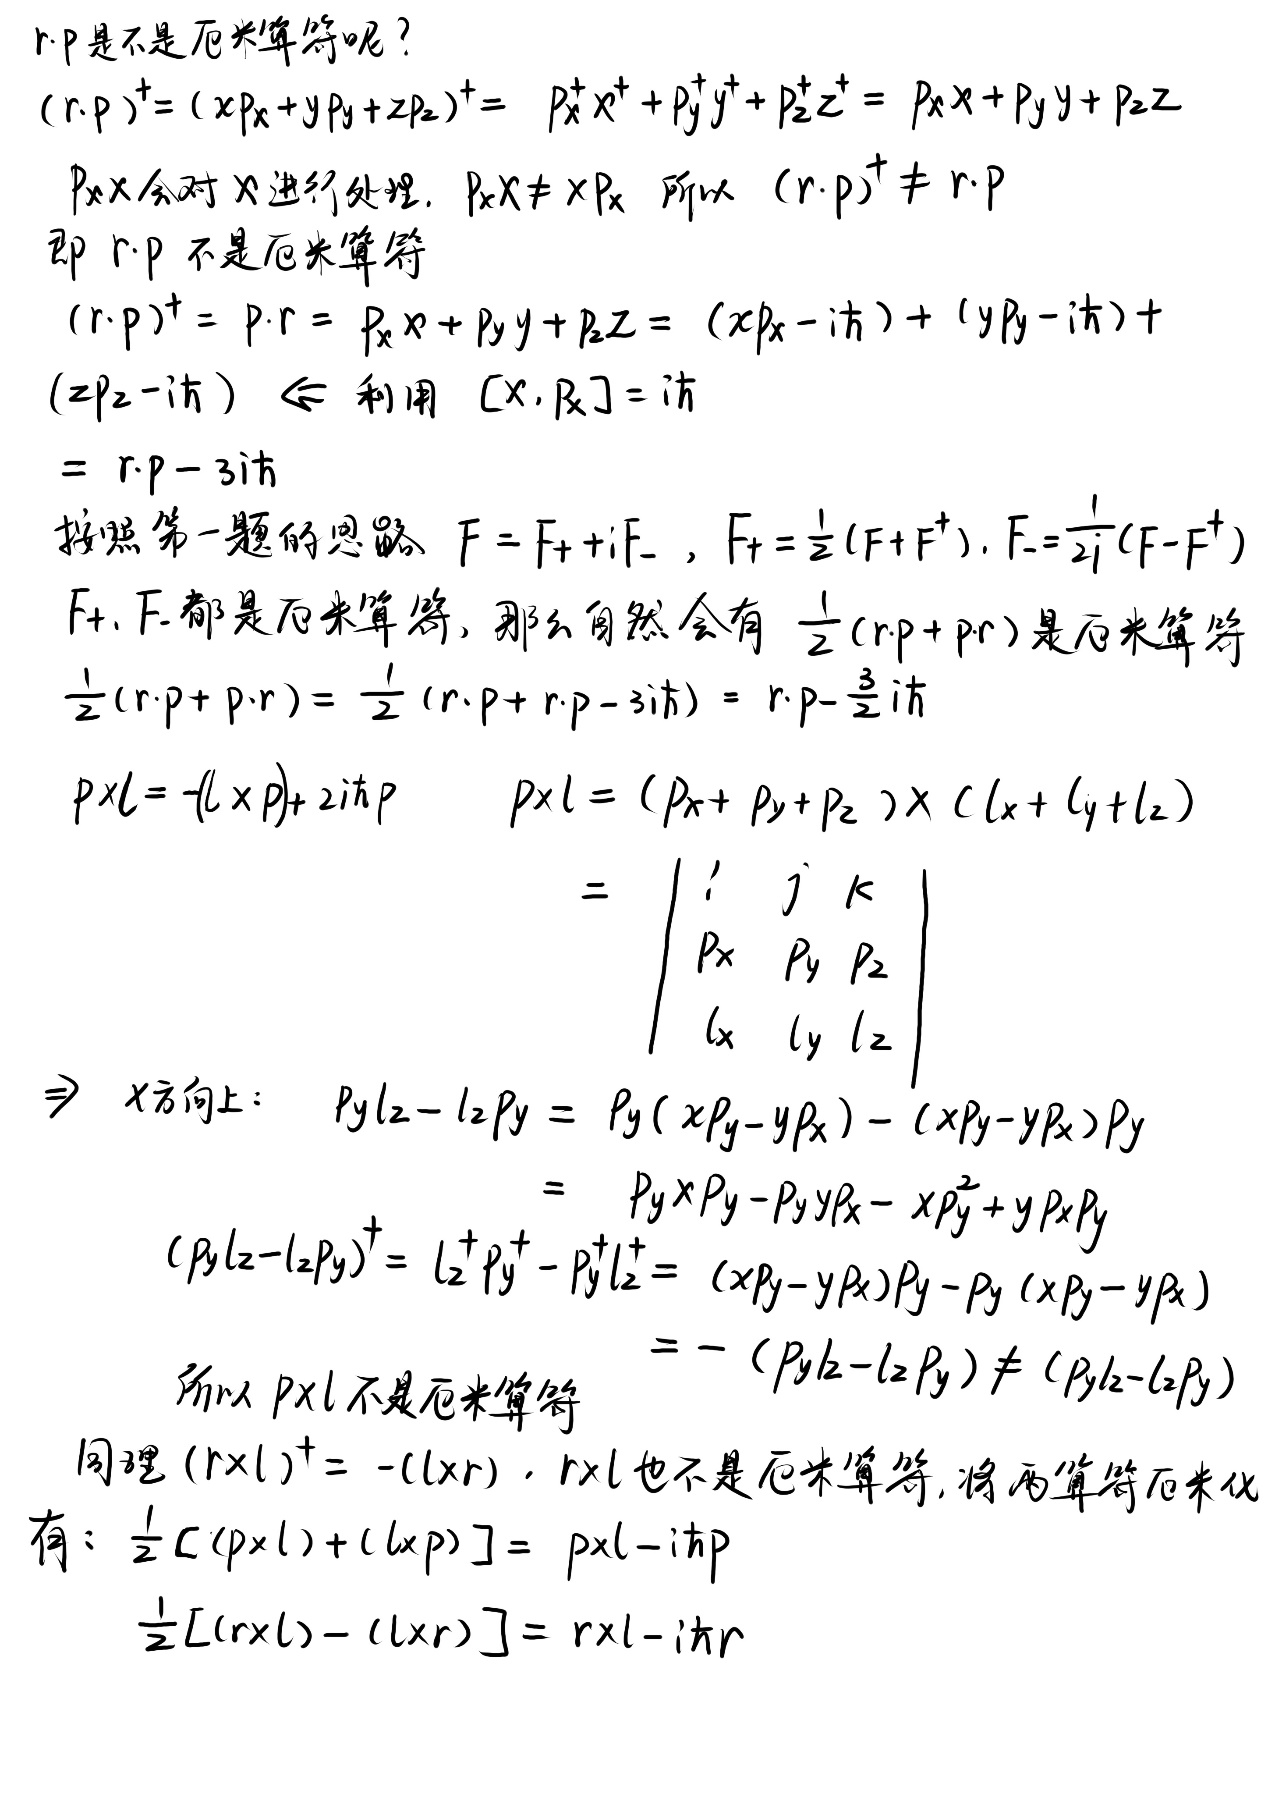 r·p是不是厄米算符呢?
(r·p)†=(xpx+ypy+zpz)†= px†x†+py†y†+pz†z†= pxx+pyy+pzz
pxx会对x进行处理. pxx≠xpx 所以 (r·p)†≠r·p
即 r·p 不是厄米算符
(r·p)†= p·r = pxx+pyy+pzz = (xpx-iħ)+(ypy-iħ)+
(zpz-iħ) ⇐ 利用 [x,px]=iħ
= r·p-3iħ
按照第一题的思路 F=F₊+iF₋, F₊=1/2(F+F†). F₋=1/2i(F-F†)
F₊, F₋都是厄米算符, 那么自然会有 1/2(r·p+p·r)是厄米算符
1/2(r·p+p·r)=1/2(r·p+r·p-3iħ)=r·p-3/2iħ
p×l=-(l×p)+2iħp p×l=(px+py+pz)×(lx+ly+lz)
= | i j k
px py pz
lx ly lz |
⇒ x方向上: pylz-lzpy = py(xpy-ypx)-(xpy-ypx)py
= pyxpy-pyypx-xpy²+ypxpy
(pylz-lzpy)†= lz†py†-py†lz†= (xpy-ypx)py-py(xpy-ypx)
=-(pylz-lzpy)≠(pylz-lzpy)
所以 p×l 不是厄米算符
同理 (r×l)†= -(l×r), r×l也不是厄米算符, 将两算符厄米化
有: 1/2[(p×l)+(l×p)]= p×l-iħp
1/2[(r×l)-(l×r)]= r×l-iħr